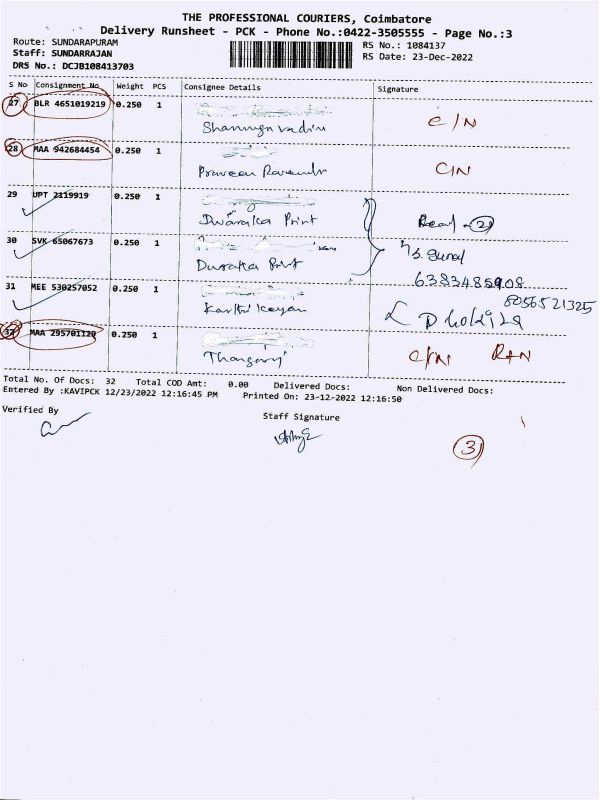 THE PROFESSIONAL COURIERS, Coimbatore
Delivery Runsheet - PCK - Phone No.:0422-3505555 - Page No.:3
Route: SUNDARAPURAM
RS No.: 1084137
Staff: SUNDARRAJAN
RS Date: 23-Dec-2022
DRS No.: DCJB108413703
S No Consignment No Weight PCS Consignee Details Signature
27 BLR 4651019219 0.250 1 C/N
28 MAA 942684454 0.250 1 C/N
Praveen
29 UPT 2119919 0.250 1
Dwaraka Print
30 SVK 65067673 0.250 1
Dwaraka Print
6383485908
31 MEE 530257052 0.250 1 8056521325
Karthi Keyan
32 MAA 295701120 0.250 1
C/N
Total No. Of Docs: 32 Total COD Amt: 0.00 Delivered Docs: Non Delivered Docs:
Entered By :KAVIPCK 12/23/2022 12:16:45 PM Printed On: 23-12-2022 12:16:50
Verified By
Staff Signature
3